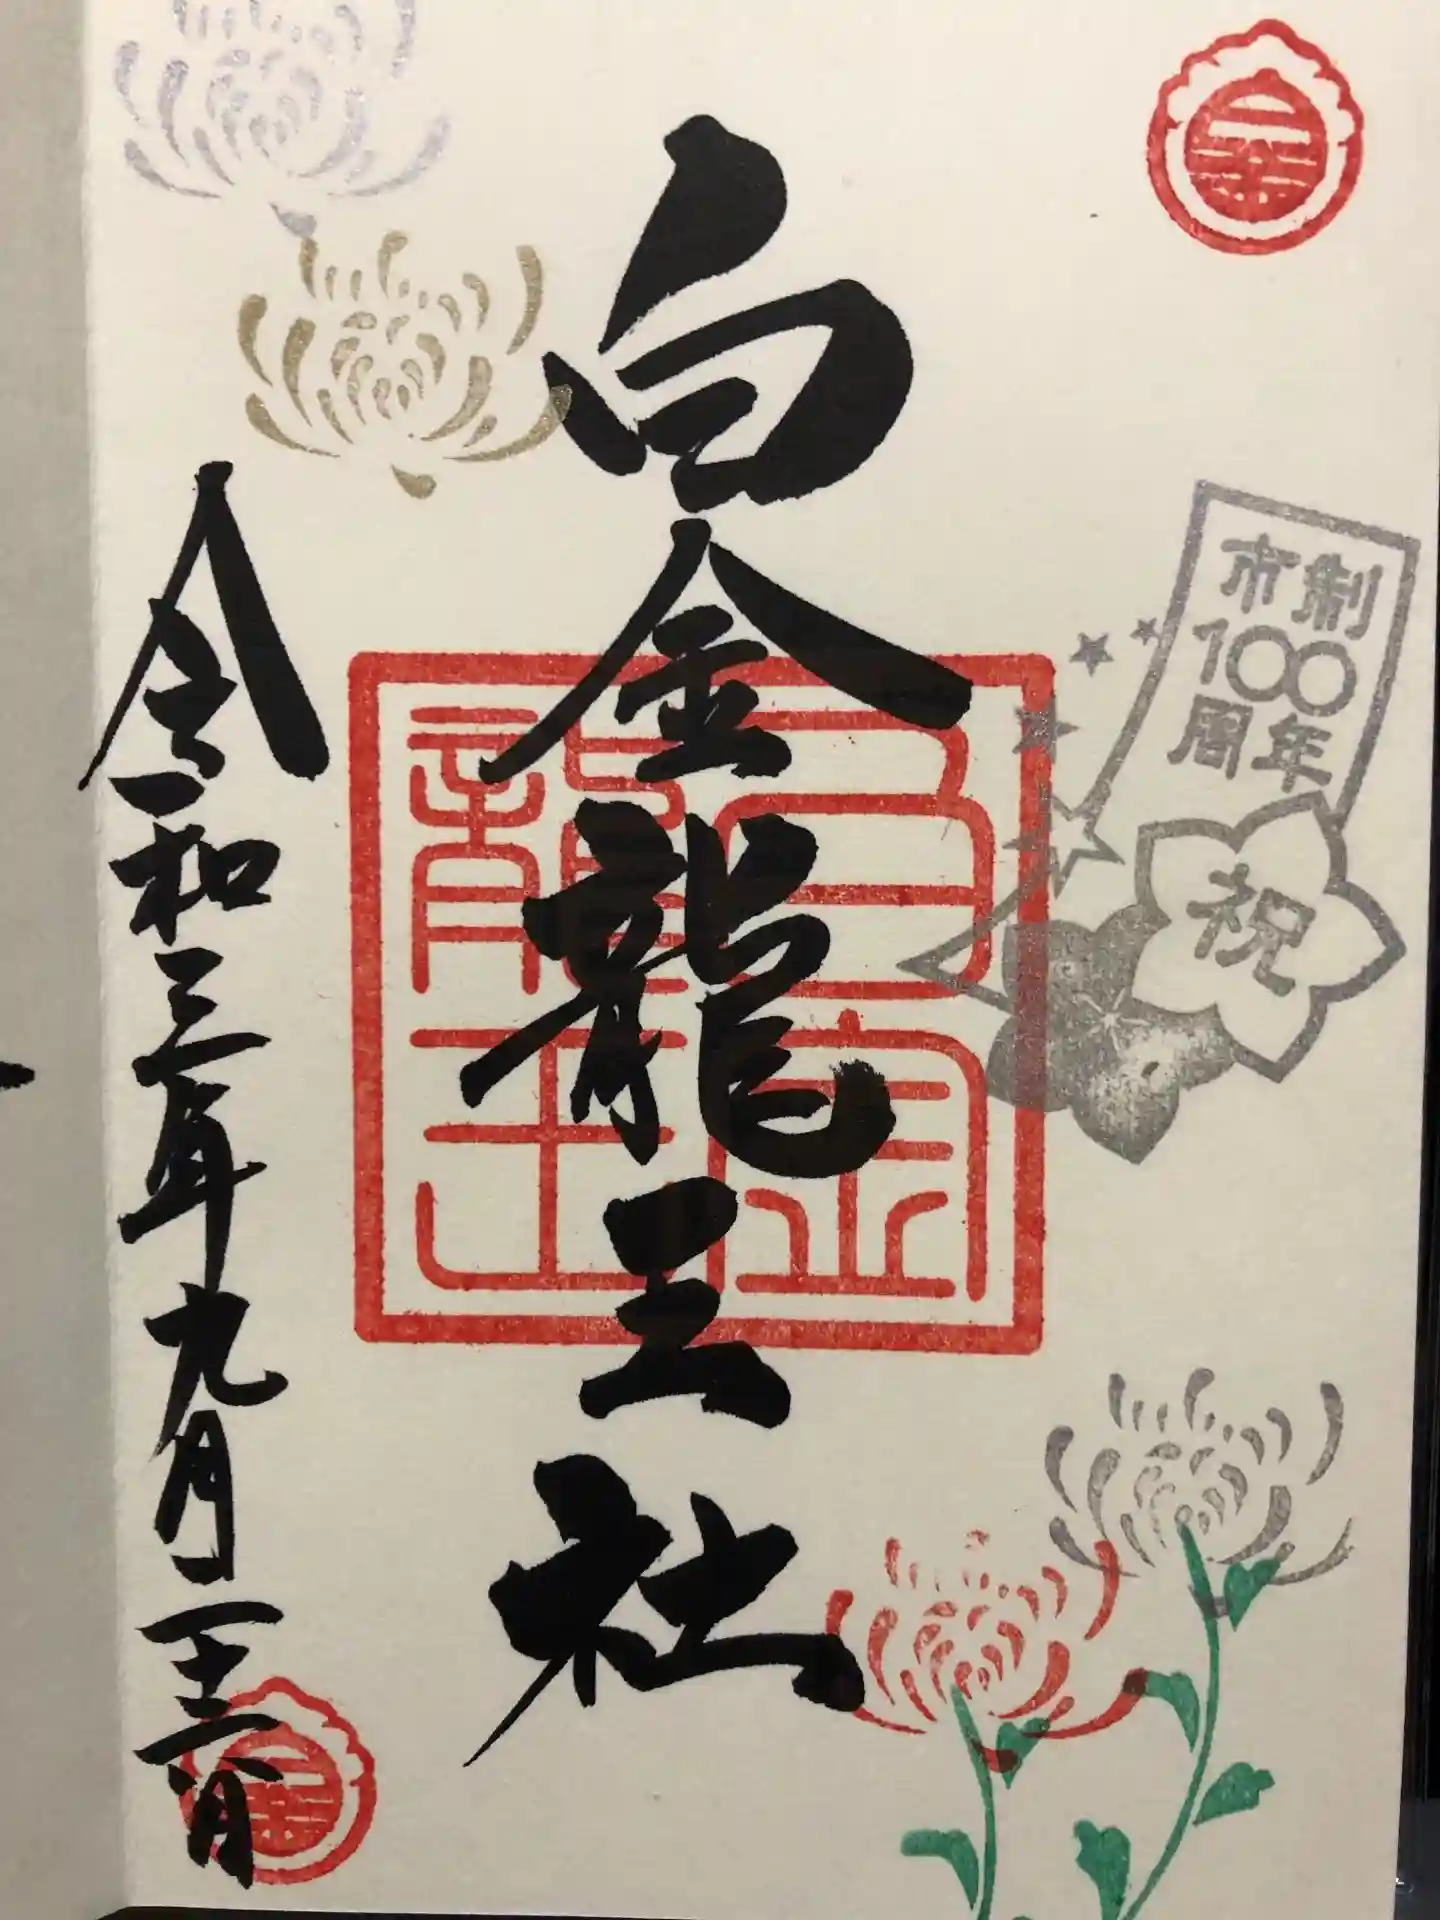 市制
100
周年
祝
白金龍王社
白金
龍王
令和三年九月